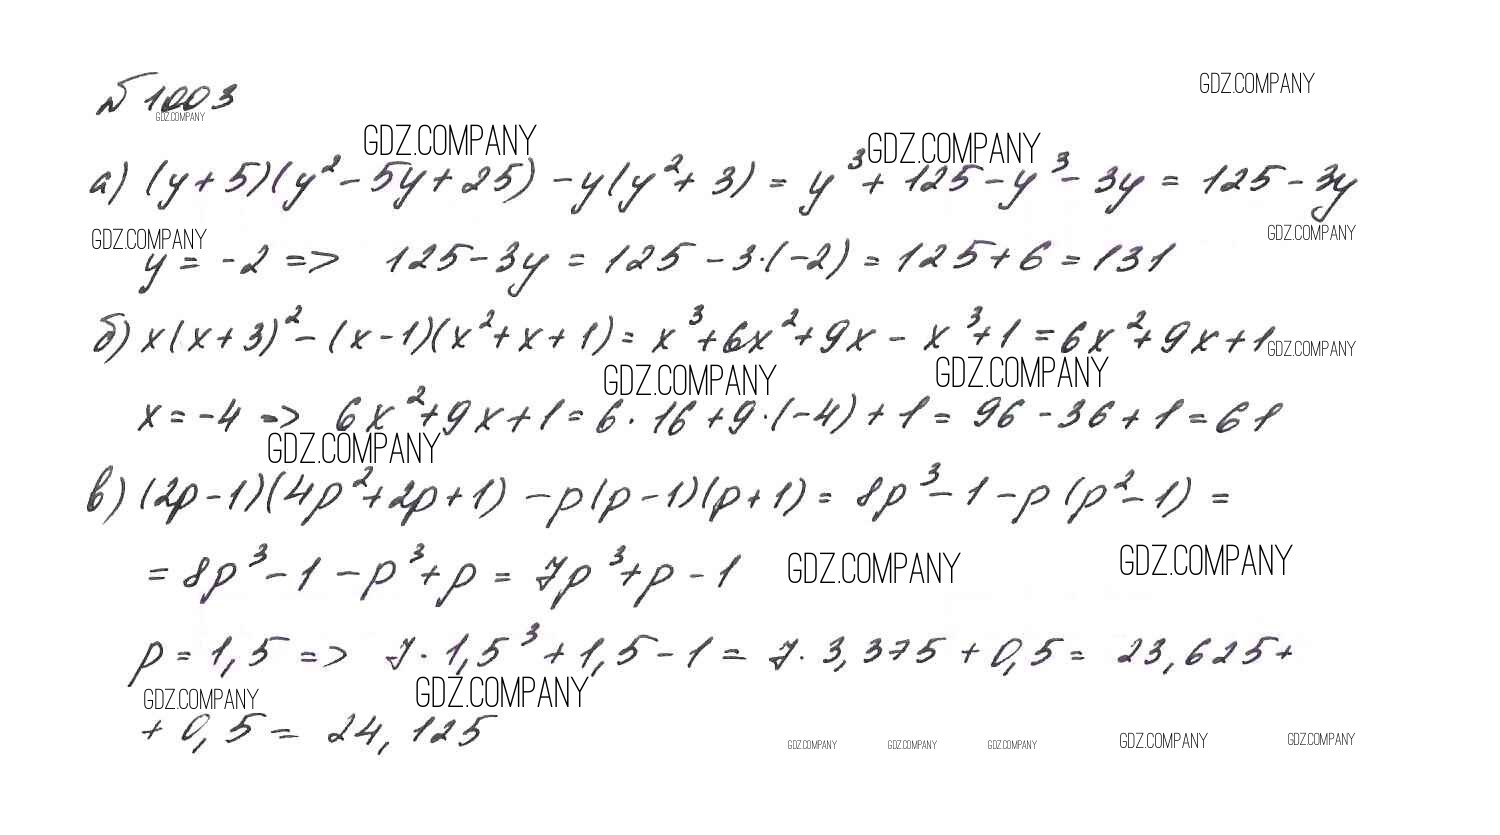 № 1003
GDZ.COMPANY
GDZ.COMPANY
GDZ.COMPANY
GDZ.COMPANY
а) (y+5)(y²-5y+25) -y(y²+3) = y³+125-y³-3y = 125-3y
GDZ.COMPANY
GDZ.COMPANY
y = -2 => 125-3y = 125-3·(-2) = 125+6 = 131
б) x(x+3)²-(x-1)(x²+x+1) = x³+6x²+9x - x³+1 = 6x²+9x+1
GDZ.COMPANY
GDZ.COMPANY
GDZ.COMPANY
x = -4 => 6x²+9x+1 = 6·16+9·(-4)+1 = 96-36+1 = 61
GDZ.COMPANY
в) (2p-1)(4p²+2p+1) -p(p-1)(p+1) = 8p³-1-p(p²-1) =
= 8p³-1-p³+p = 7p³+p-1
GDZ.COMPANY
GDZ.COMPANY
p = 1,5 => 7·1,5³+1,5-1 = 7·3,375+0,5 = 23,625+
GDZ.COMPANY
GDZ.COMPANY
+ 0,5 = 24,125
GDZ.COMPANY
GDZ.COMPANY
GDZ.COMPANY
GDZ.COMPANY
GDZ.COMPANY